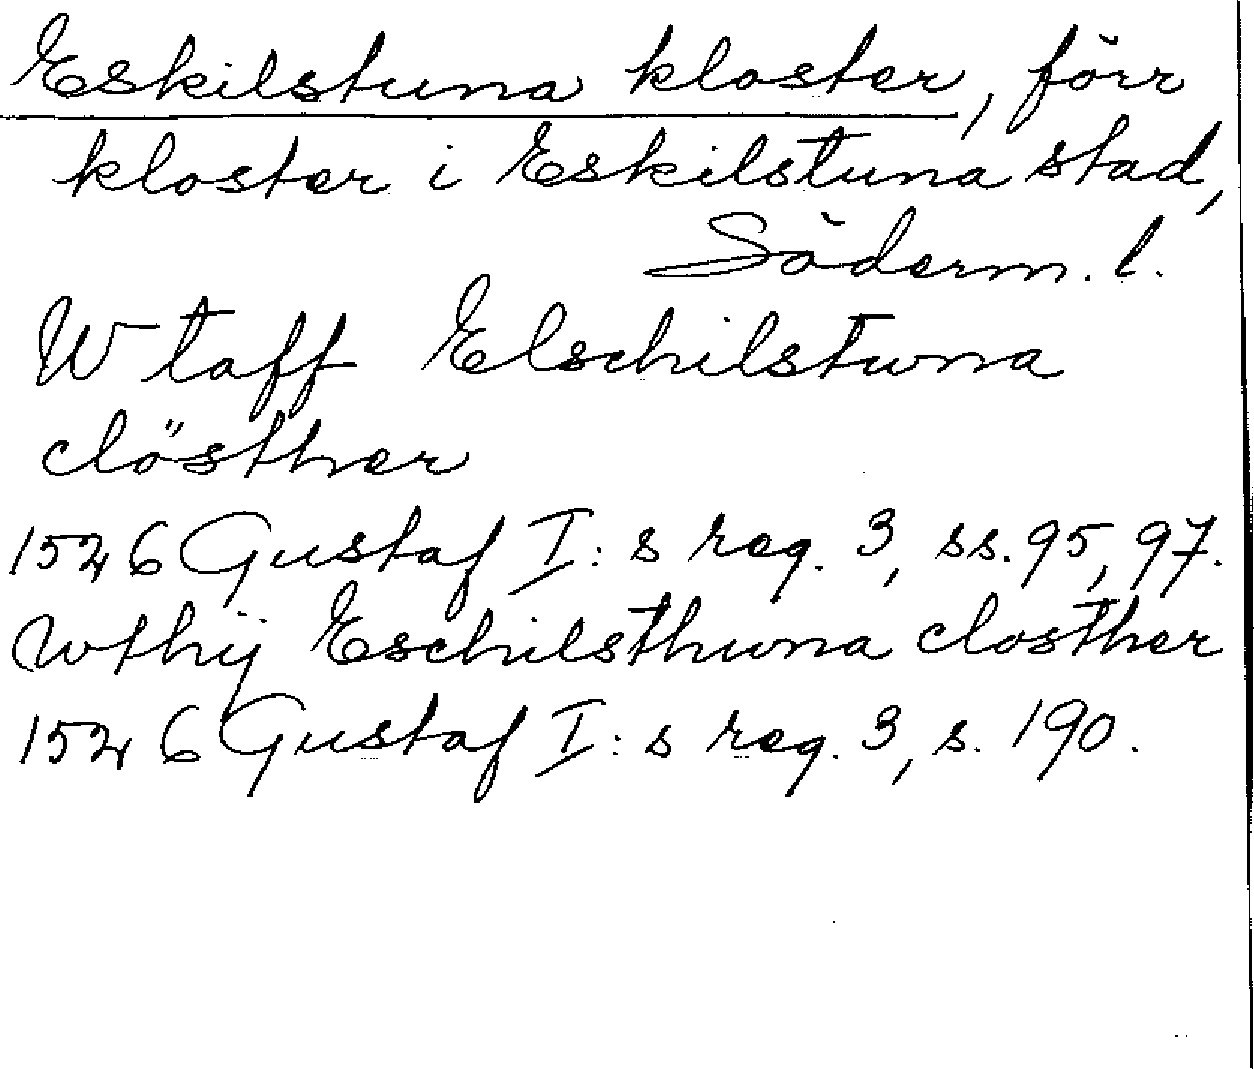 Eskilstuna kloster, förr
kloster i Eskilstuna stad,
Söderm. l.
Wtaff Elschilstwna
clösther
1526 Gustaf I:s reg. 3, ss. 95, 97.
Wthÿ Eschilsthwna closther
1526 Gustaf I:s reg. 3, s. 190.